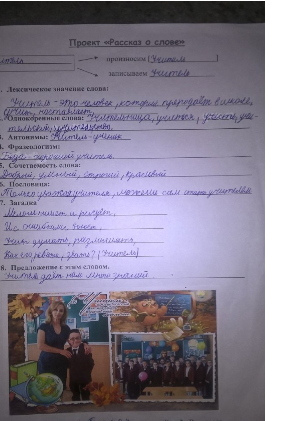 Проект «Рассказ о слове»
произносим [учител
записываем Учитель
Лексическое значение слова:
Учитель - это человек, который преподаёт в школе,
Учит, наставляет.
Однокоренные слова: Учительница, учиться,
3. Антонимы: Учитель-ученик
4. Фразеологизм:
хороший учитель.
5. Сочетаемость слова:
Добрый, умный, строгий, красивый
6. Пословица:
Только уважая учителя, можешь сам стать учителем.
7. Загадка
Мелом пишет и рисует,
И с ошибками воюет,
Учит думать, размышлять,
Как его ребята, звать? (Учитель)
8. Предложение с этим словом.
Учитель даёт нам много знаний.